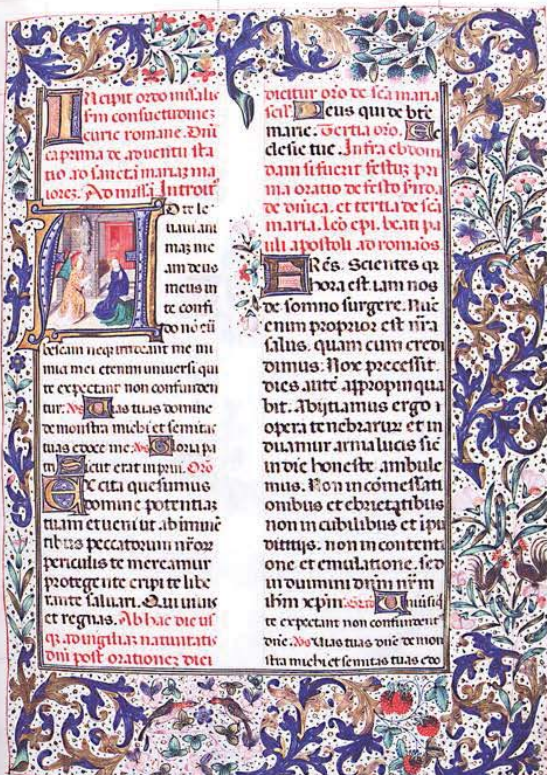 Incipit ordo missalis
scdm consuetudinez
curie romane. Dnica
prima de aduentu sta
tio ad sanctā mariaz ma
iorez. Ad missā Introit
AD te le
uaui ani
maz me
am deus
meus in
te confi
do nō eru
bescam neqz irrideant me ini
mici mei etenim uniuersi qui
te expectant non confunden
tur. Vs Uias tuas domine
demonstra michi et semitas
tuas edoce me. Vs Gloria pa
tri Sicut erat in prin. Oro
Excita quesumus
domine potentiaz
tuam et ueni ut ab immine
tibus peccatorum nr̄oꝝ
periculis te mereamur
protegente eripi te libe
rante saluari. Qui uiuis
et regnas. Ab hac die us
qz ad uigiliaz natiuitatis
dnī post orationez diei
dicitur orō de scā maria
Deus qui de bte
marie. Tertia orō. Ec
clesie tue. Infra ebdom
dam si fuerit festuz pri
ma oratio de festo
de dnica. et tertia de scā
maria. Leō epi. beati pa
uli apostoli ad romaōs.
FRēs. Scientes qz
hora est iam nos
de somno surgere. Nūc
enim proprior est nr̄a
salus. quam cum credi
dimus: Nox precessit.
dies autē appropinqua
bit. Abyciamus ergo
opera tenebrarum et in
duamur arma lucis sic
in die honeste ambule
mus. Non in comessati
onibus et ebrietatibus
non in cubilibus et ipu
dicitijs. non in contenti
one et emulatione. sed
induimini dnm nr̄m
ihm xpm. Grad Uniuersi qui
te expectant non confundentur
dnē. Vs Uias tuas dnē demon
stra michi et semitas tuas edo